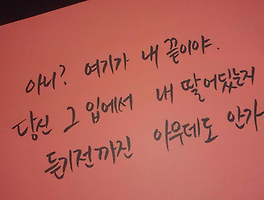 아니? 여기가 내 끝이야.
당신 그 입에서 내 딸어딨는지
듣기전까진 아무데도 안가